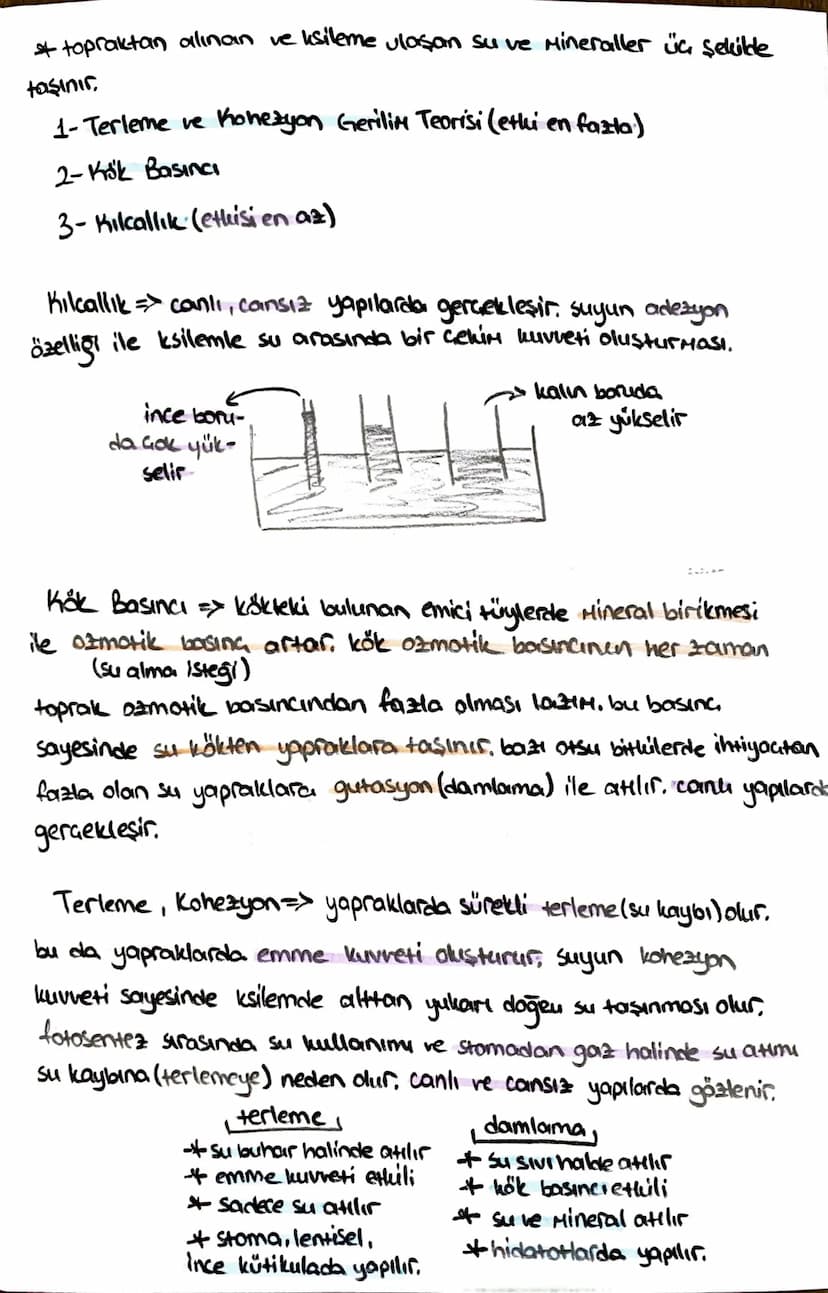 * topraktan alınan ve ksileme ulaşan su ve mineraller üç şekilde
taşınır.
1- Terleme ve Kohezyon Gerilim Teorisi (etki en fazla)
2- Kök Basıncı
3- Kılcallık (etkisi en az)
Kılcallık => canlı, cansız yapılarda gerçekleşir. suyun adezyon
özelliği ile ksilemle su arasında bir çekim kuvveti oluşturması.
ince boru-
da çok yük-
selir
kalın boruda
az yükselir
Kök Basıncı => kökteki bulunan emici tüylerde mineral birikmesi
ile ozmotik basınç artar. kök ozmotik basıncının her zaman
(su alma isteği)
toprak ozmotik basıncından fazla olması lazım. bu basınç
sayesinde su kökten yapraklara taşınır. bazı otsu bitkilerde ihtiyaçtan
fazla olan su yapraklara gutasyon (damlama) ile atılır. canlı yapılarda
gerçekleşir.
Terleme, Kohezyon => yapraklarda sürekli terleme (su kaybı) olur.
bu da yapraklarda emme kuvveti oluşturur. suyun kohezyon
kuvveti sayesinde ksilemde alttan yukarı doğru su taşınması olur.
fotosentez sırasında su kullanımı ve stomadan gaz halinde su atımı
su kaybına (terlemeye) neden olur. canlı ve cansız yapılarda gözlenir.
terleme
* su buhar halinde atılır
* emme kuvveti etkili
* sadece su atılır
* stoma, lentisel,
ince kütikulada yapılır.
damlama
* su sıvı halde atılır
* kök basıncı etkili
* su ve mineral atılır
* hidatotlarda yapılır.